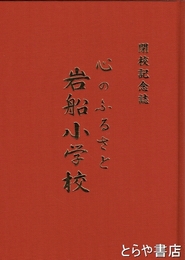 閉校記念誌
心のふるさと
岩船小学校
とらや書店